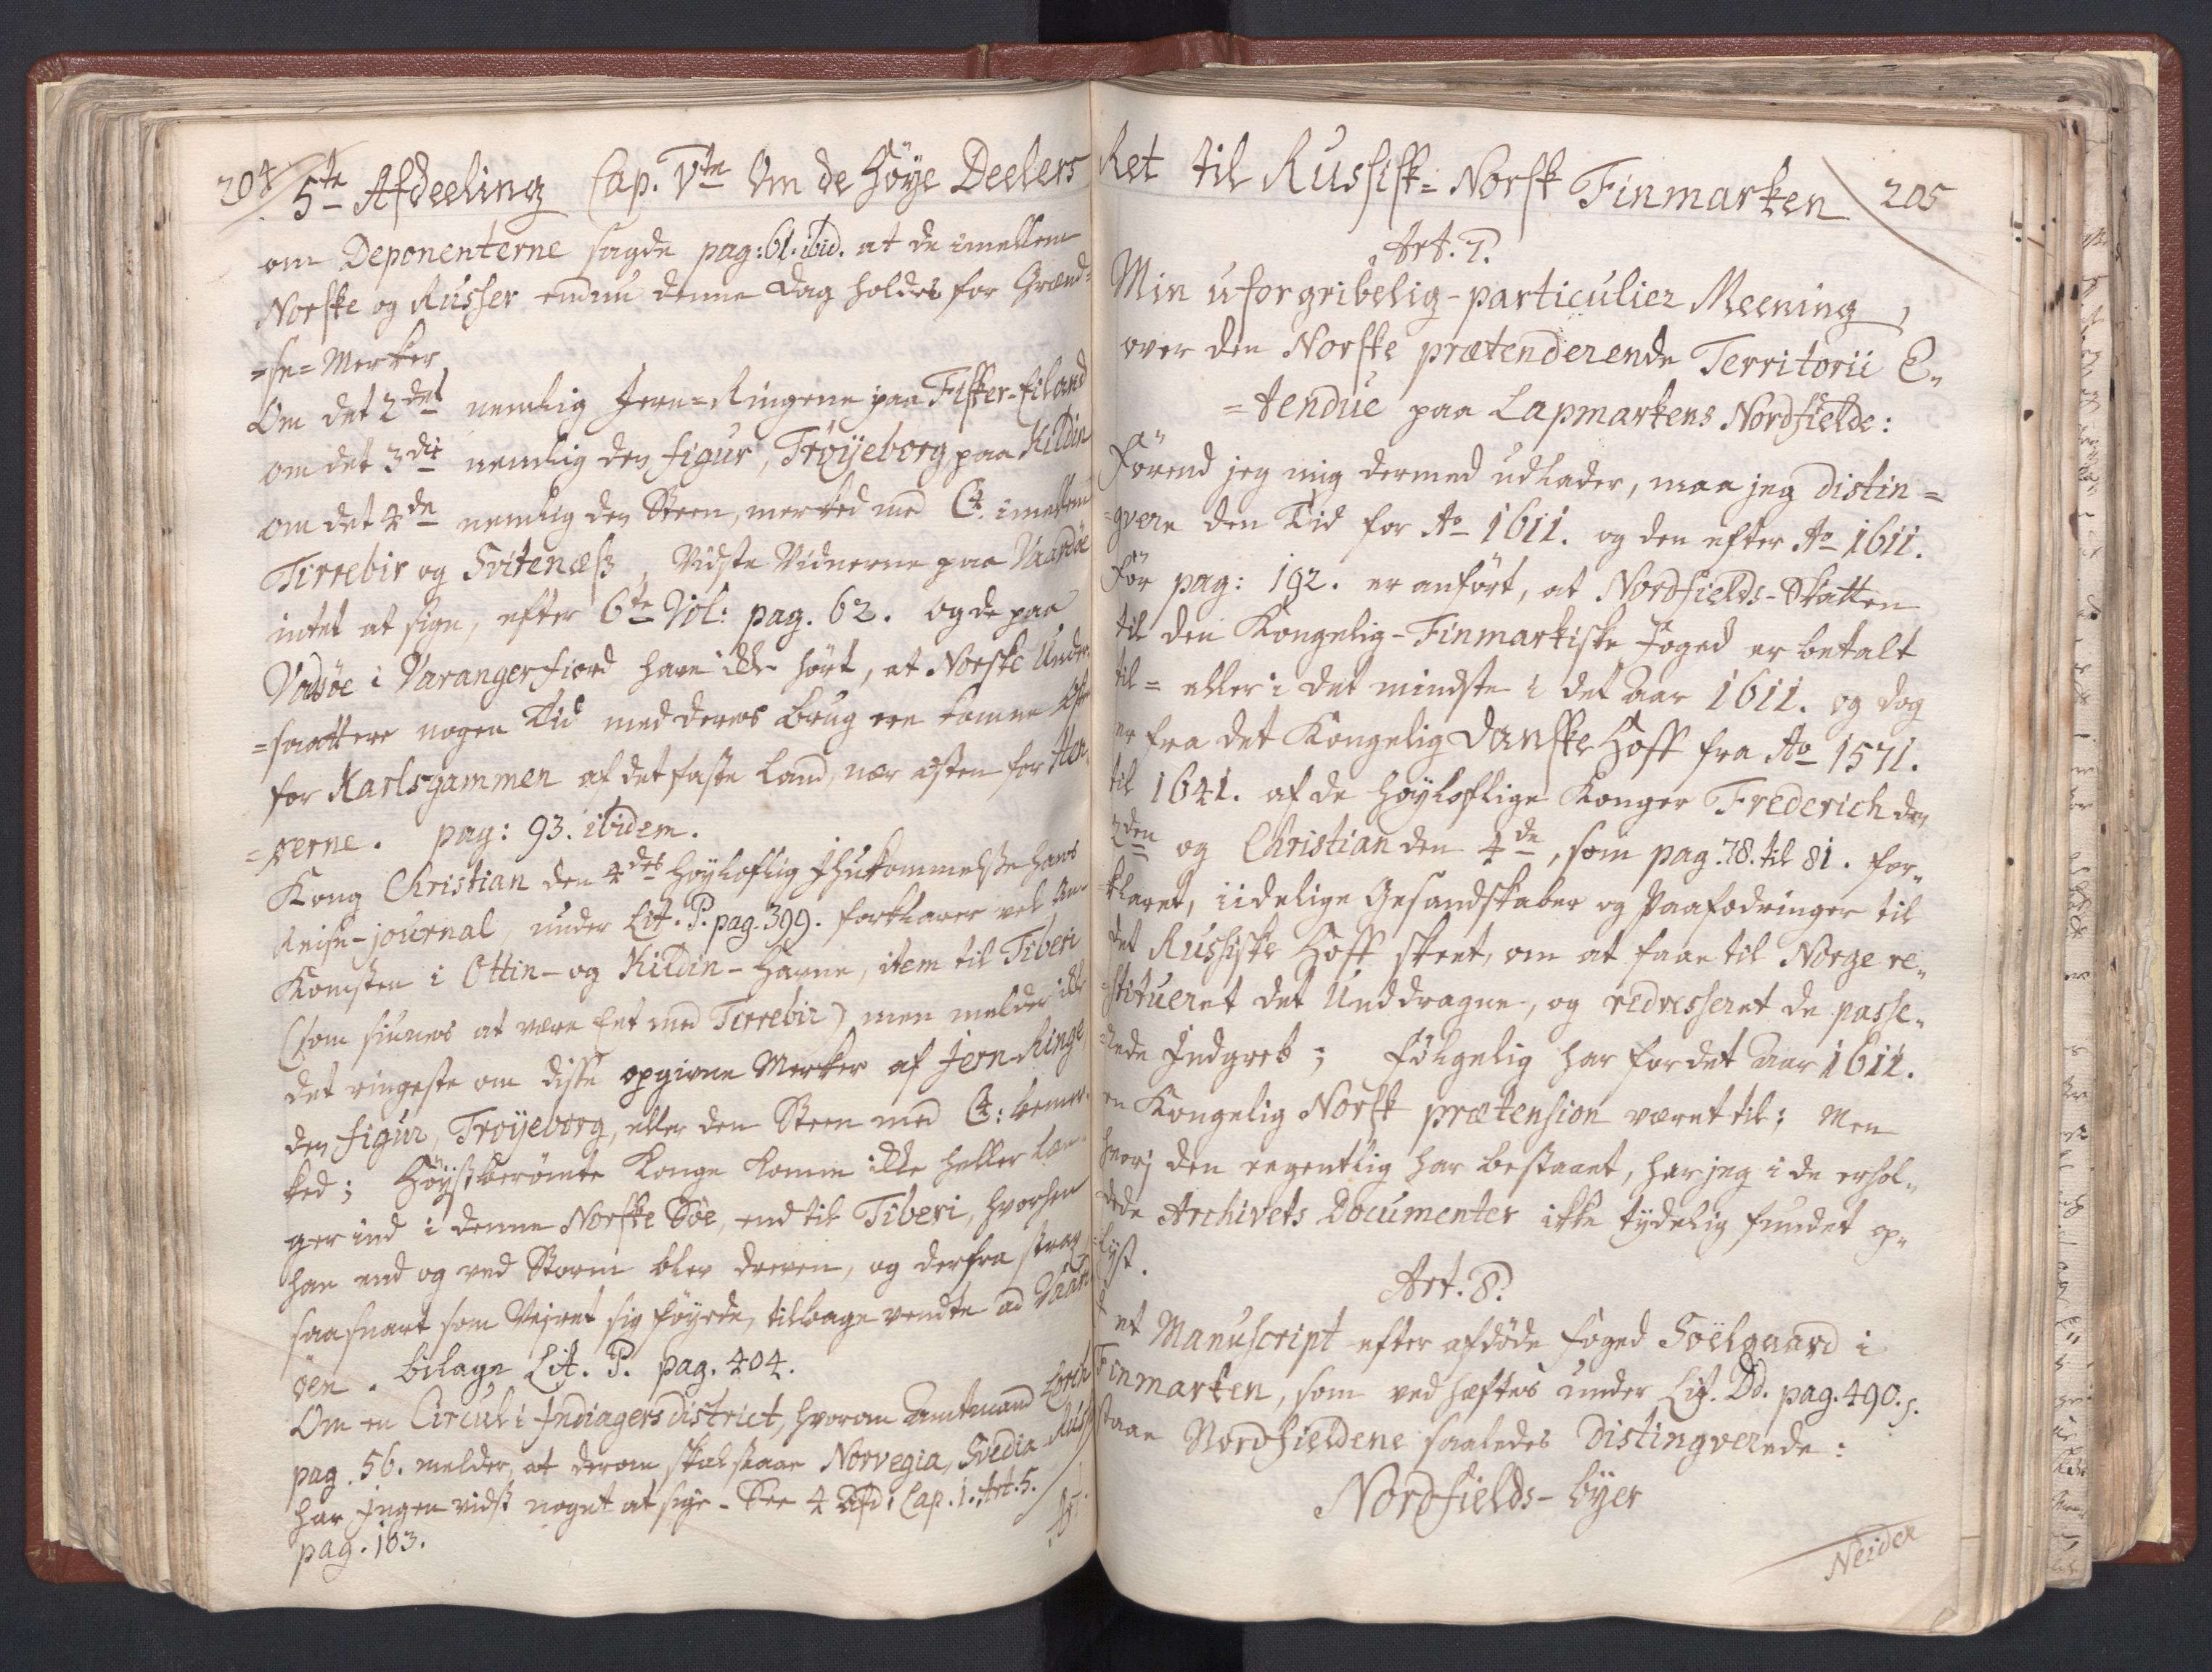 204 5te Afdeeling Cap. Vte Om de Høye Deelers
om Deponenterne sagde pag: 61. ibid. at de imellem
Norske og Russer endnu denne Dag holdes for Grænd=
=se=Merker
Om det 2det nemlig Jern=Ringene paa Fisker-Eiland
om det 3die nemlig den figur, Trøyeborg, paa Kildin
om det 4de nemlig den Steen, merked med C4. imellem
Tirrebir og Svitenæss, vidste Vidnerne paa Vaardøe
intet at sige, efter 6te Vol: pag. 62. og de paa
Vadsøe i Varangerfiord have ikke hørt, at Norske Under=
=saattere nogen Tid med deres brug ere komne
for Karlsgammen af det faste Land, nær østen for
=øerne. pag: 93. ibidem.
Kong Christian den 4des høyloflig Ihukommelse hans
Reise-journal, under Lit. P. pag. 399. forklarer vel An=
Komsten i Ottin- og Kildin-Havne, item til Tiberi
(som siunes at være Eet med Tirrebir) men melder ikke
det ringeste om disse opgivne Merker af Jern-Ringe
den figur, Trøyeborg, eller den Steen med C4: bemer=
ked; Høystberømte Konge komm ikke heller læn=
ger ind i denne Norske Søe, end til Tiberi, hvorhen
han end og ved Storm blev dreven, og derfra strax
saasnart som Vejret sig føyede, tilbage vendte ad Vaard
øen. bilage Lit. P. pag. 404.
Om en Circul i Indiagers district, hvorom Amtmand Lorch
pag. 56. melder, at derom skal staae Norvegia, Svedia Russ
har Ingen vidst noget at sige. See 4 Afd: Cap. 1. Art. 5.
pag. 163.
Ret til Russisk=Norsk Finmarken 205
Art. 7.
Min uforgribelig-particulier Meening,
over den Norske prætenderende Territorii E=
=tendue paa Lapmarkens Nordfielde:
Førend jeg mig dermed udlader, maa jeg distin=
=gvere den Tid for Ao 1611. og den efter Ao 1611.
Før pag: 192. er anført, at Nordfields-Skatten
til den Kongelig-Finmarkiske Foged er betalt
til= eller i det mindste i det Aar 1611. og dog
er fra det Kongelig Danske Hoff fra Ao 1571.
til 1641. af de høyloflige Konger Frederich den
2den og Christian den 4de, som pag. 78. til 81. for=
=klaret, iidelige Gesandskaber og Paafodringer til
det Russiske Hoff skeet, om at faae til Norge re=
=stitueret det Unddragne, og redresseret de passe=
=rede Indgreb; følgelig har for det Aar 1611.
en Kongelig Norsk prætension været til; Men
hvorj den egentlig har bestaaet, har jeg i de erhol=
dede Archivets Documenter ikke tydelig fundet op=
=lyst.
Art. 8.
I et Manuscript efter afdøde foged Soelgaard i
Finmarken, som ved hæftes under Lit. Dd. pag. 490.
staae Nordfieldene saaledes Distingverede:
Nordfields-byer
Neiden